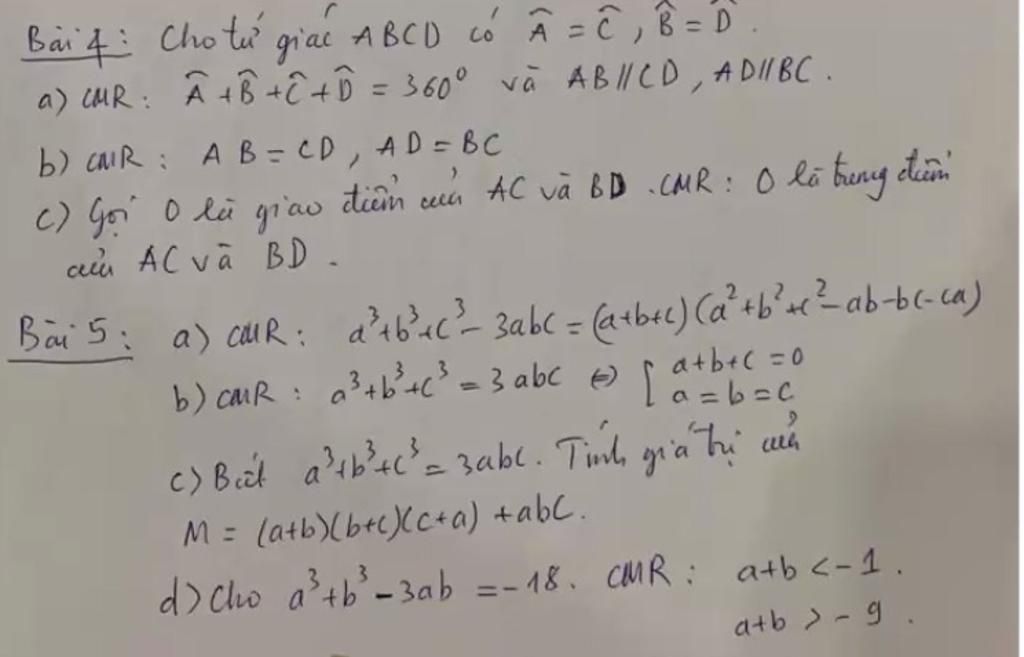 Bài 4: Cho tứ giác ABCD có Â = Ĉ, B̂ = D̂.
a) CMR: Â + B̂ + Ĉ + D̂ = 360° và AB//CD, AD//BC.
b) CMR: AB = CD, AD = BC
c) Gọi O là giao điểm của AC và BD. CMR: O là trung điểm
của AC và BD.
Bài 5: a) CMR: a³+b³+c³ - 3abc = (a+b+c)(a²+b²+c²-ab-bc-ca)
b) CMR: a³+b³+c³ = 3abc ⇔ [ a+b+c = 0
a = b = c
c) Biết a³+b³+c³ = 3abc. Tính giá trị của
M = (a+b)(b+c)(c+a) + abc.
d) Cho a³+b³-3ab = -18. CMR: a+b < -1.
a+b > -9.